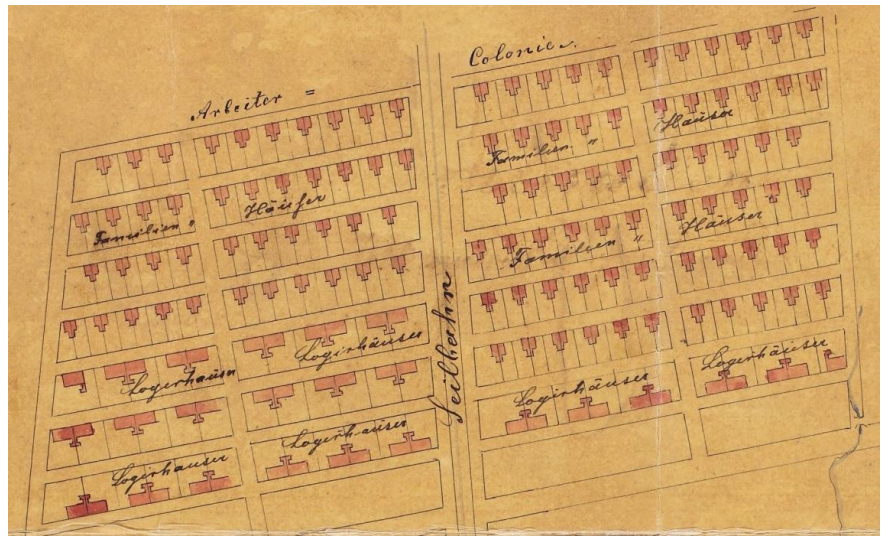 Arbeiter = Colonie.
Familien "
Häuser
Familien "
Häuser
Familien "
Häuser
Seilbahn
Logirhäuser
Logirhäuser
Logirhäuser
Logirhäuser
Logirhäuser
Logirhäuser